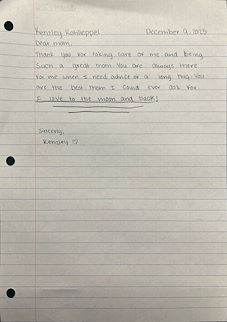 Kenzley Kohleppel December 9, 2025
Dear mom,
Thank you for taking care of me and being
such a great mom. You are always there
for me when I need advice or a long hug. You
are the best mom I could ever ask for.
I love to the moon and back!
Sincerly,
Kenzley ♡